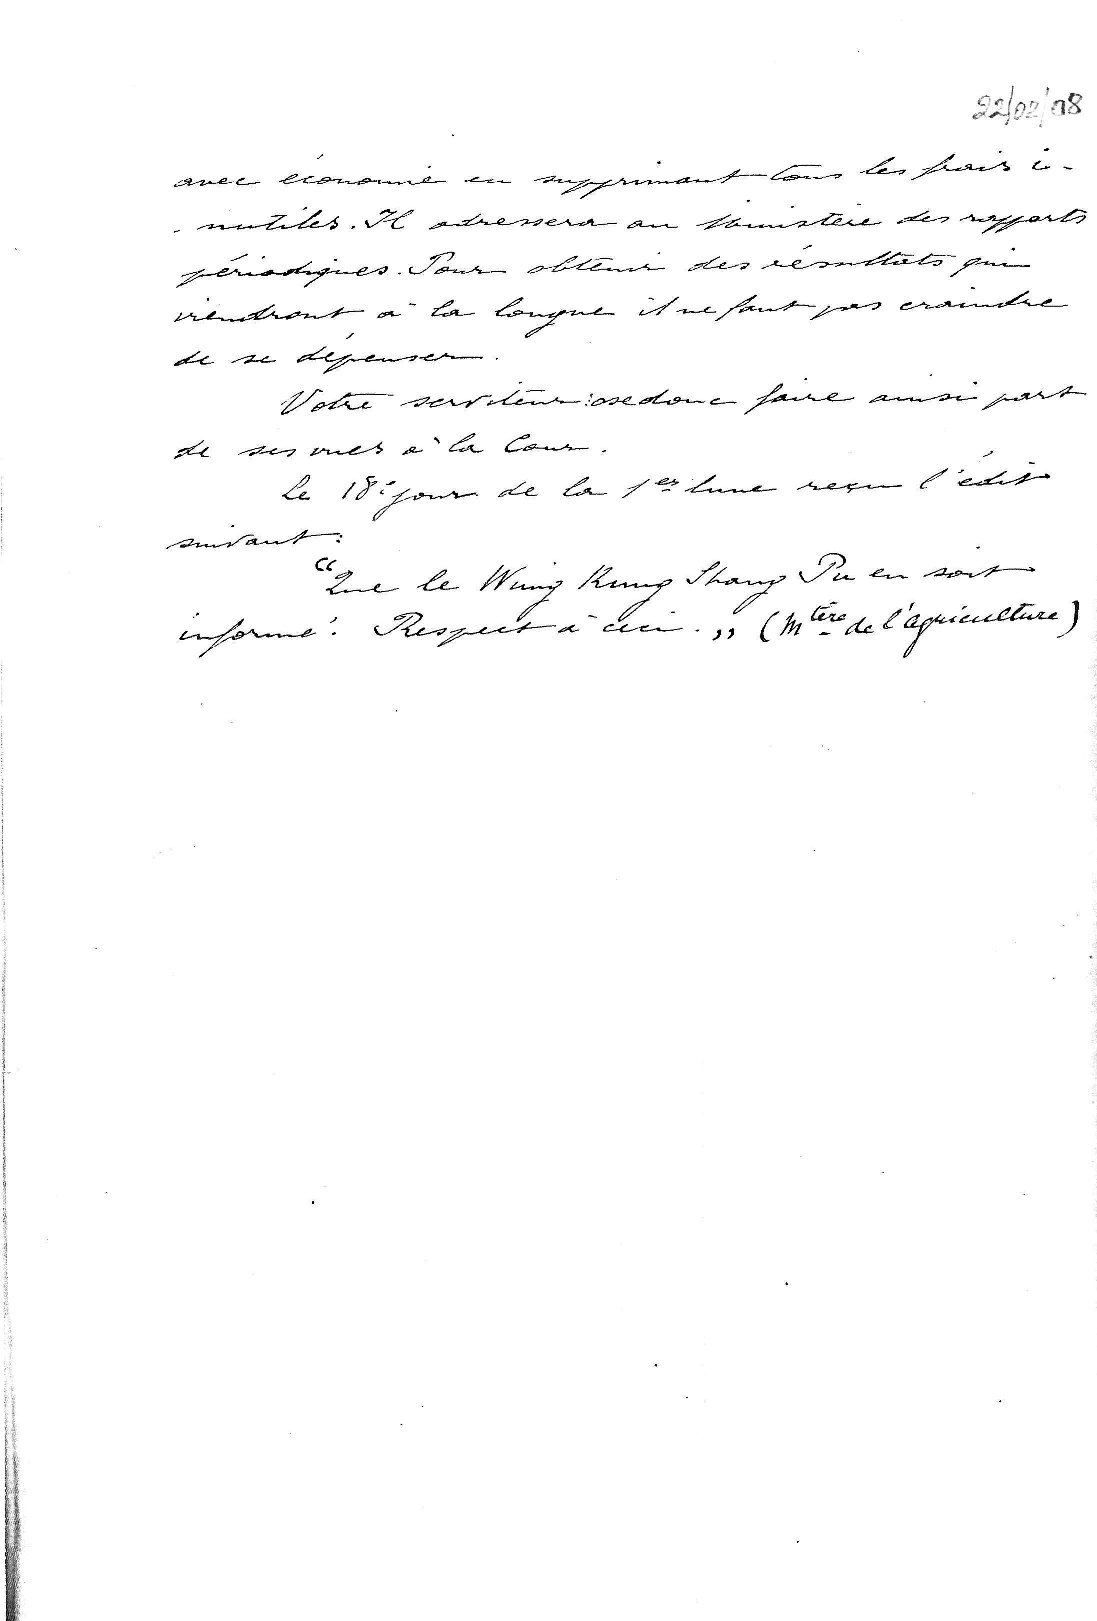 22/02/08
avec économie en supprimant tous les frais i-
-nutiles. Il adressera au Ministère des rapports
périodiques. Pour obtenir des résultats qui
viendront à la longue il ne faut pas craindre
de se dépenser.
Votre serviteur ose donc faire ainsi part
de ses vues à la Cour.
Le 18e jour de la 1er lune reçu l'édit
suivant:
"Que le Wung Kung Shang Pu en soit
informé. Respect à ceci.,, (Mtère de l'agriculture)